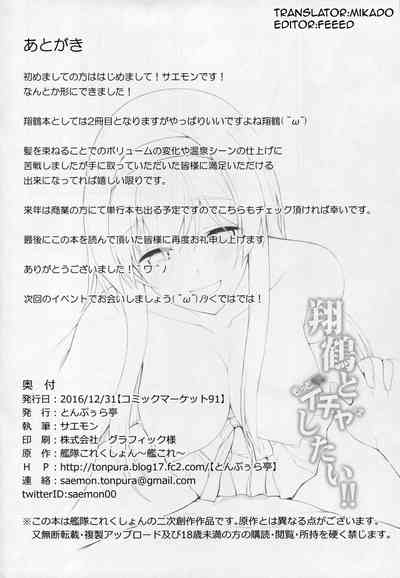 TRANSLATOR:MIKADO
EDITOR:FEEED
あとがき
初めましての方ははじめまして！サエモンです！
なんとか形にできました！
翔鶴本としては2冊目となりますがやっぱりいいですよね翔鶴(´ω`)
髪を束ねることでのボリュームの変化や温泉シーンの仕上げに
苦戦しましたが手に取っていただいた皆様に満足いただける
出来になってれば嬉しい限りです。
来年は商業の方にて単行本も出る予定ですのでこちらもチェック頂ければ幸いです。
最後にこの本を読んで頂いた皆様に再度お礼申し上げます
ありがとうございました！｀ワ´ﾉ
次回のイベントでお会いしましょう(´ω`)ﾉｼくではでは！
翔鶴と
イチャ
イしたい!!
奥 付
発行日：2016/12/31【コミックマーケット91】
発 行：とんぷぅら亭
執 筆：サエモン
印 刷：株式会社 グラフィック様
原 作：艦隊これくしょん～艦これ～
H P：http://tonpura.blog17.fc2.com/【とんぷぅら亭】
連 絡：saemon.tonpura@gmail.com
twitterID:saemon00
※この本は艦隊これくしょんの二次創作作品です。原作とは異なる点がございます。
又無断転載・複製アップロード及び18歳未満の方の購読・閲覧・所持を硬く禁じます。